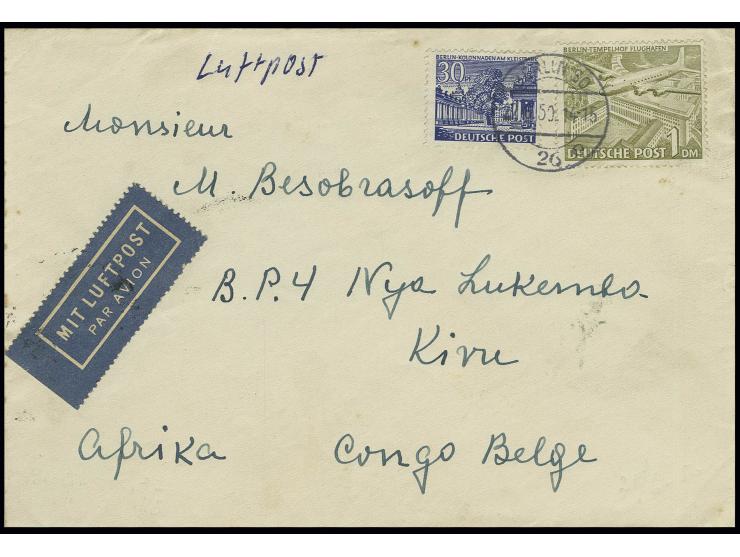 Luftpost
BERLIN-KOLONNADEN AM KLEISTPARK
30
DEUTSCHE POST
BERLIN-TEMPELHOF FLUGHAFEN
1 DM
DEUTSCHE POST
Monsieur
M. Besobrasoff
MIT LUFTPOST
PAR AVION
B.P.4 Nya Lukemba
Kivu
Afrika Congo Belge